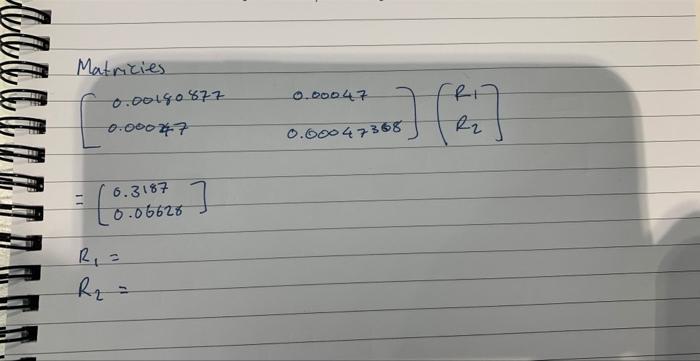 Matricies
0.00180877 0.00047 R1
0.00047 0.00047368 R2
= 0.3187
0.06628
R1 =
R2 =